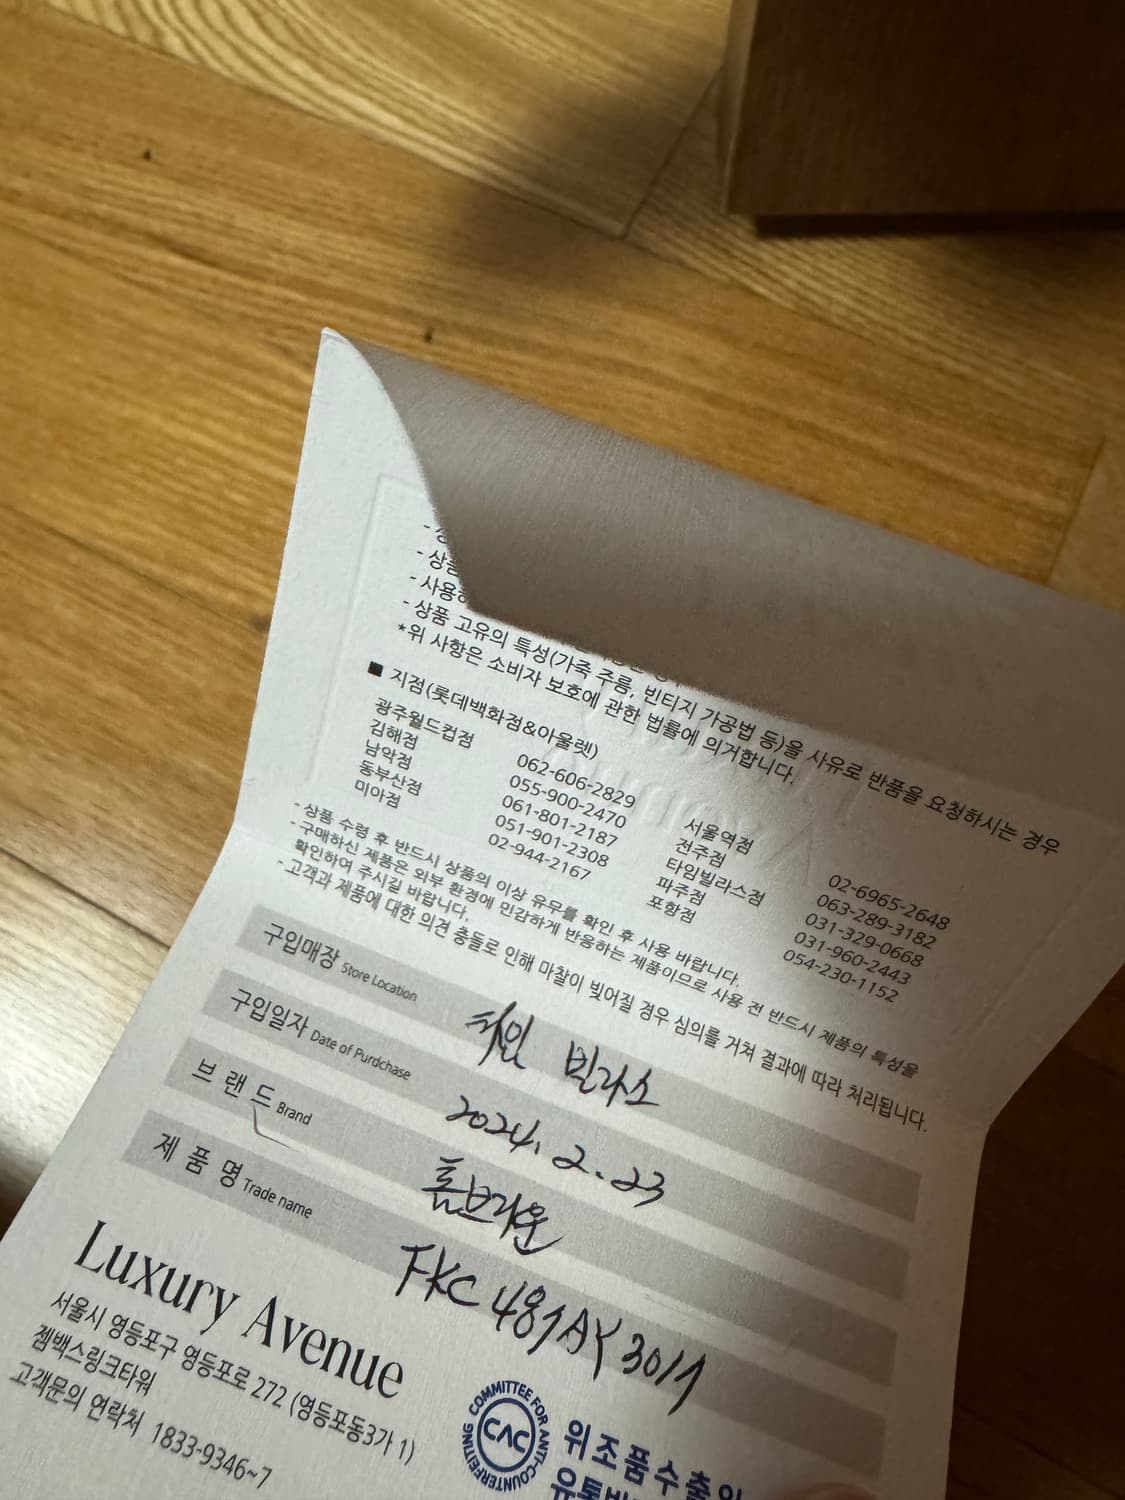 - 상품
- 사용
- 상품 고유의 특성(가죽 주름, 빈티지 가공법 등)을 사유로 반품을 요청하시는 경우
*위 사항은 소비자 보호에 관한 법률에 의거합니다.
■ 지점(롯데백화점&아울렛)
광주월드컵점 062-606-2829 서울역점 02-6965-2648
김해점 055-900-2470 전주점 063-289-3182
남악점 061-801-2187 타임빌라스점 031-329-0668
동부산점 051-901-2308 파주점 031-960-2443
미아점 02-944-2167 포항점 054-230-1152
- 상품 수령 후 반드시 상품의 이상 유무를 확인 후 사용 바랍니다.
- 구매하신 제품은 외부 환경에 민감하게 반응하는 제품이므로 사용 전 반드시 제품의 특성을
확인하여 주시길 바랍니다.
- 고객과 제품에 대한 의견 충돌로 인해 마찰이 빚어질 경우 심의를 거쳐 결과에 따라 처리됩니다.
구입매장 Store Location 타임 빌라스
구입일자 Date of Purdchase 2024. 2. 23
브랜드 Brand 톰브라운
제품명 Trade name FKC 481AY3011
Luxury Avenue
서울시 영등포구 영등포로 272 (영등포동3가 1)
젬백스링크타워
고객문의 연락처 1833-9346~7
COMMITTEE FOR ANTI-COUNTERFEITING
CAC
위조품수출입